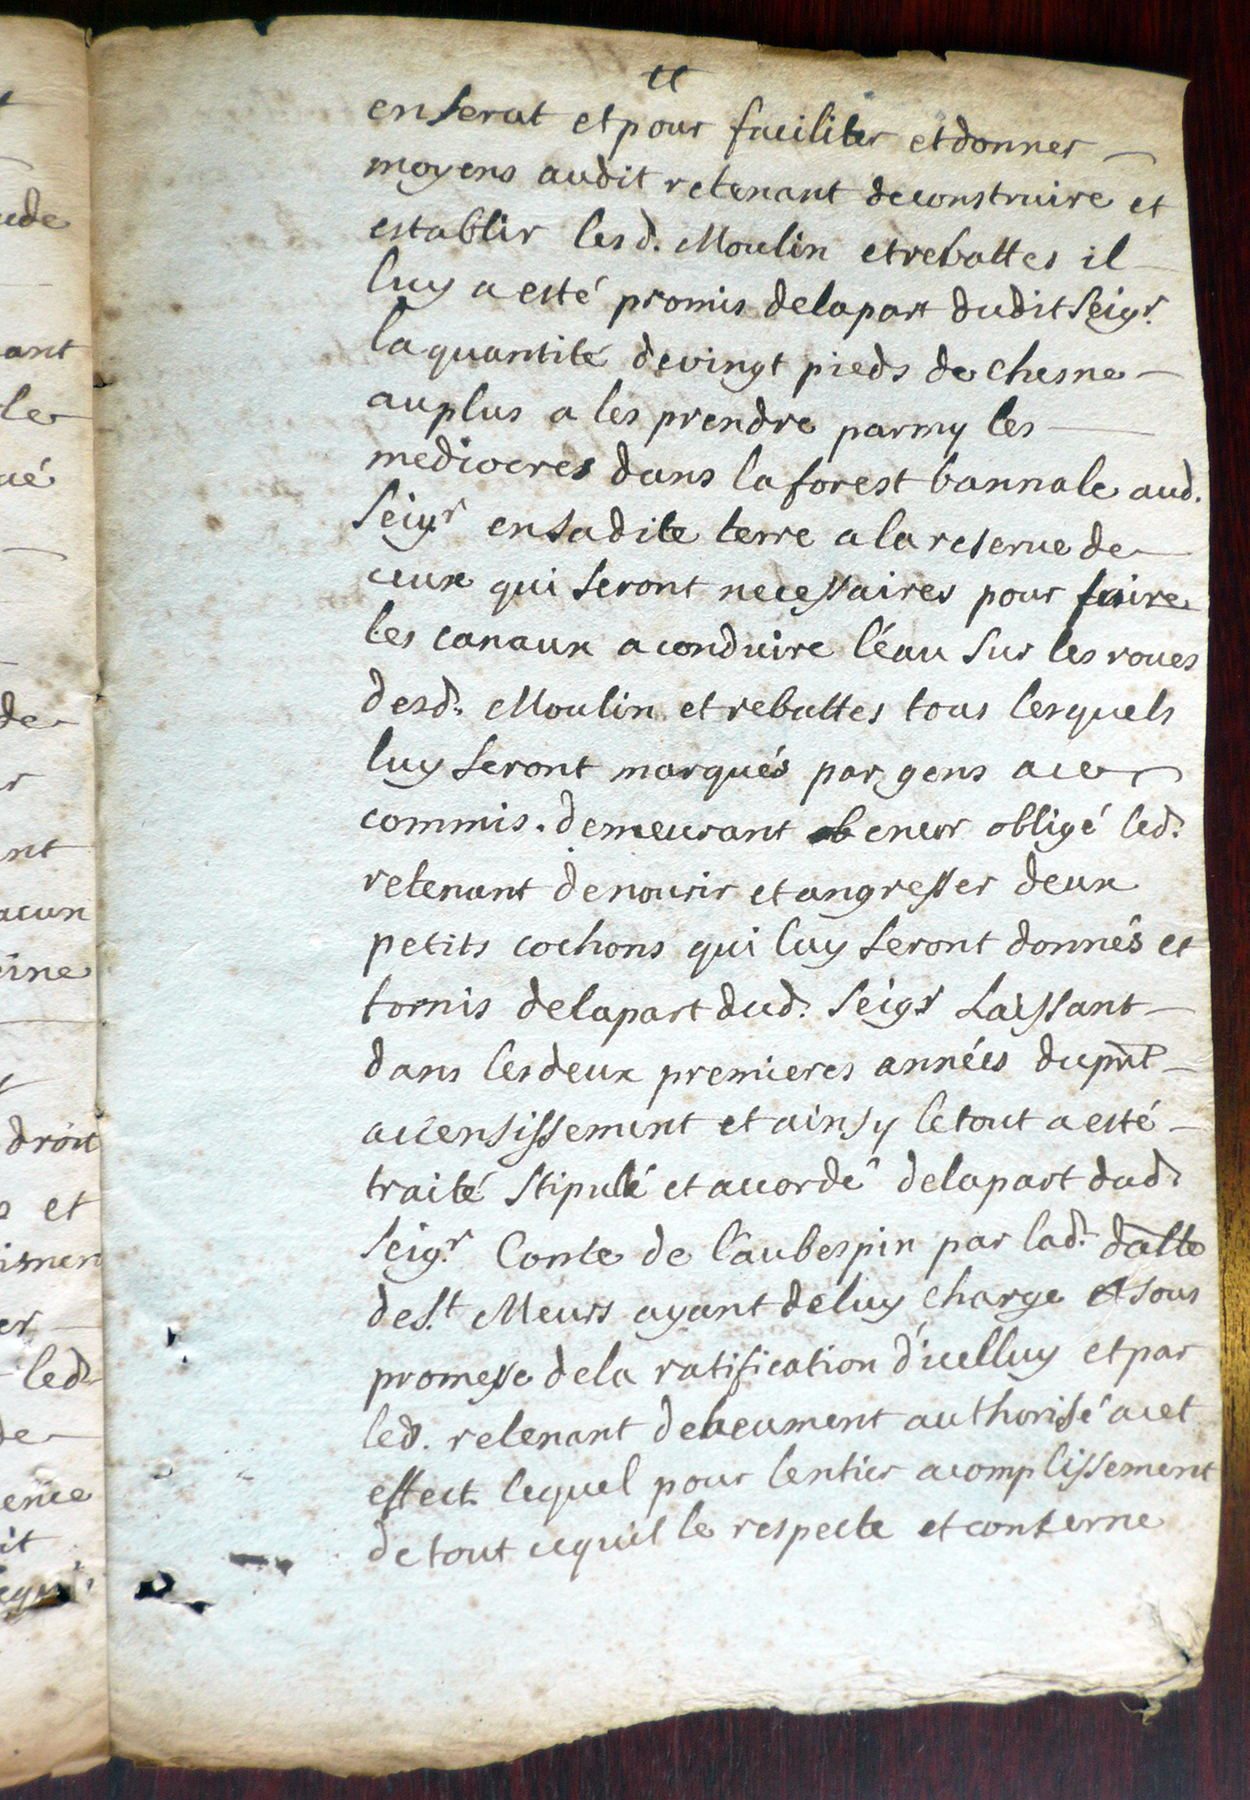 11
en serat et pour faciliter et donner
moyens audit retenant de construire et
establir lesd. Moulin et rebattes il
luy a esté promis de la part dudit Seigr.
la quantité de vingt pieds de chesne
au plus a les prendre parmy les
mediocres dans la forest bannale aud.
Seigr en sadite terre a la reserue de
ceux qui seront necessaires pour faire
les canaux a conduire l'éau sur les roues
desd. Moulin et rebattes tous lesquels
luy seront marqués par gens a ce
commis. demeurant encor obligé led.
retenant de nourir et angresser deux
petits cochons qui luy seront donnés et
fornis de la part dud. Seigr Laissant
dans les deux premieres années du pnt
acensissement et ainsy le tout a esté
traité stipulé et acordé de la part dud.
Seigr. Conte de l'aubespin par lad. datte
de St. Meurs ayant de luy charge et sous
promesse de la ratification d'icelluy et par
led. retenant deheument authorisé a cet
effect lequel pour lentier acomplissement
de tout ce quil le respecte et conserne
ude
ant
le
de
nt
acun
droit
et
er
led.
de
it